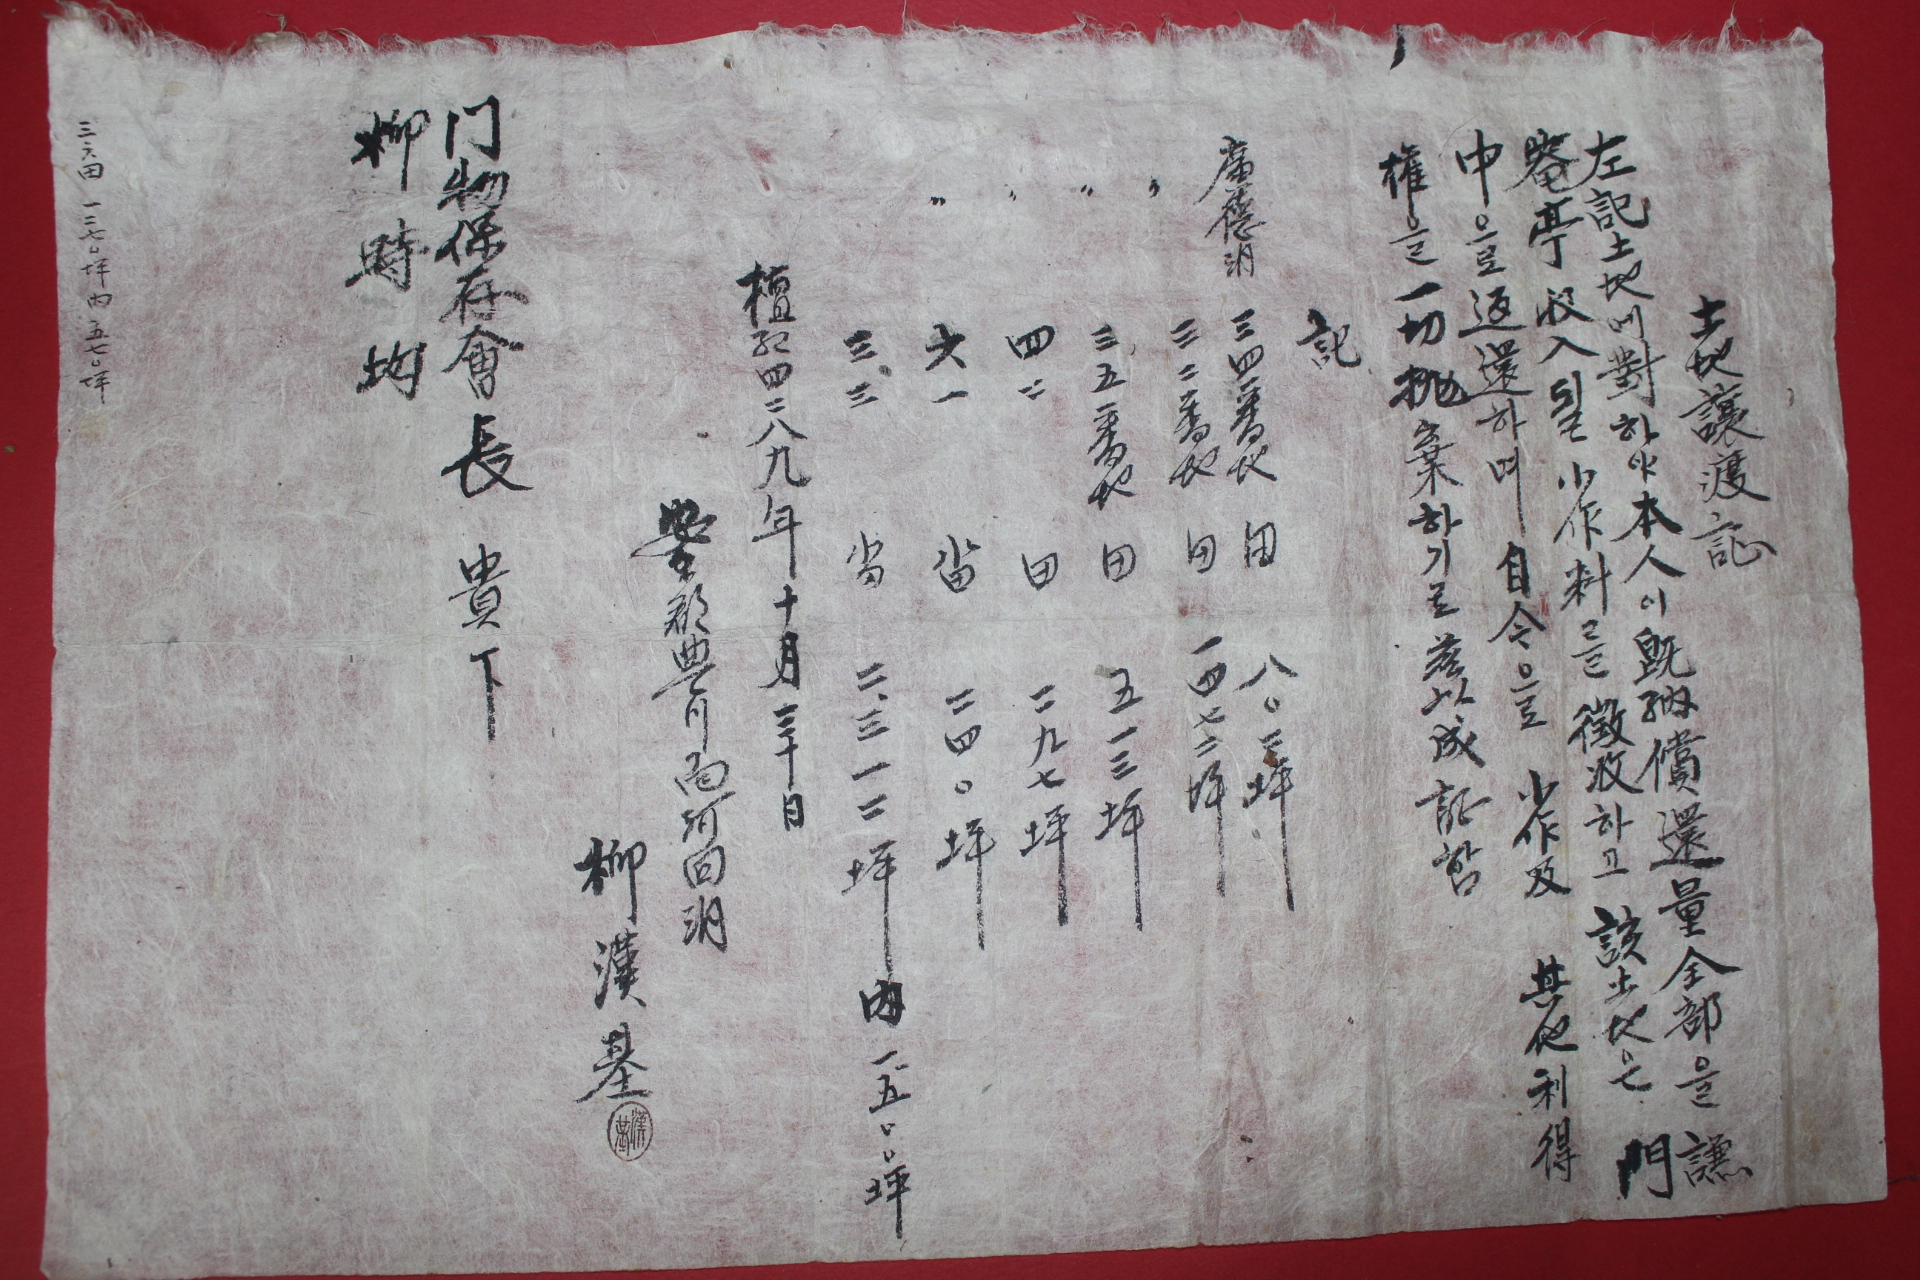 土地讓渡証
左記土地에對하야本人이旣納償還量全部을謙
菴亭收入될小作料를徵收하고該土地은門
中으로返還하며自今으로小作及其他利得
權을一切抛棄하기로玆以成証함
記
廣德洞 三四一番地 田 八〇三坪
〃 三二二番地 田 一四七二坪
〃 三五一番地 田 五一三坪
〃 四二 田 二九七坪
〃 六一 畓 二四〇坪
三三 畓 二、三一二坪內一五〇〇坪
檀紀四二八九年十月三十日
安東郡豊川面河回洞
柳漢基
門物保存會長 貴下
柳時均
三六田 一二七〇坪內五七〇坪